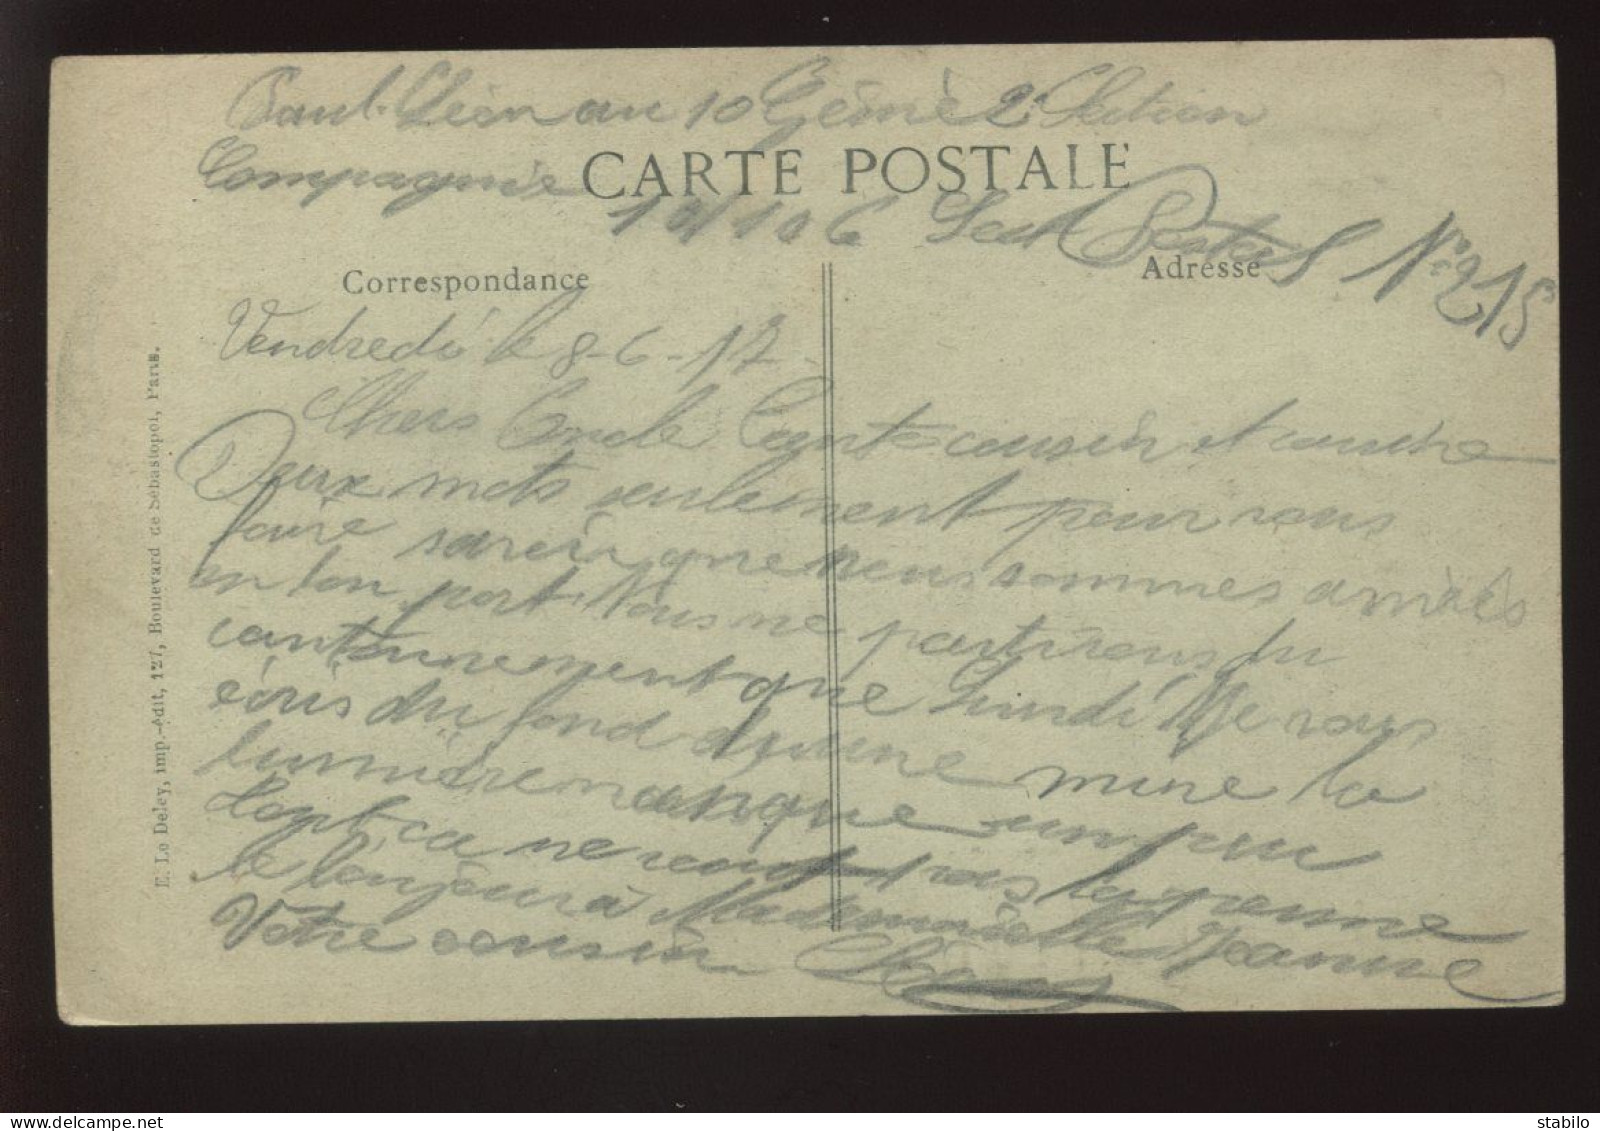 Paul Léon au 10 Génie 2e Section
Compagnie
CARTE POSTALE
10/106 Sect Postal No 215
Correspondance
Adresse
Vendredi le 8-6-17
Chers Oncle Tante cousin et cousine
Deux mots seulement pour vous
faire savoir que nous sommes arrivés
en bon port Nous ne partirons du
cantonnement que Lundi Je vous
écris du fond d'une mine la
lumière manque un peu
ça ne vaut pas la
le bonjour à Mademoiselle Jeanne
Votre cousin
E. Le Deley, imp.-édit, 127, Boulevard de Sébastopol, Paris.
stabilo
© www.delcampe.net